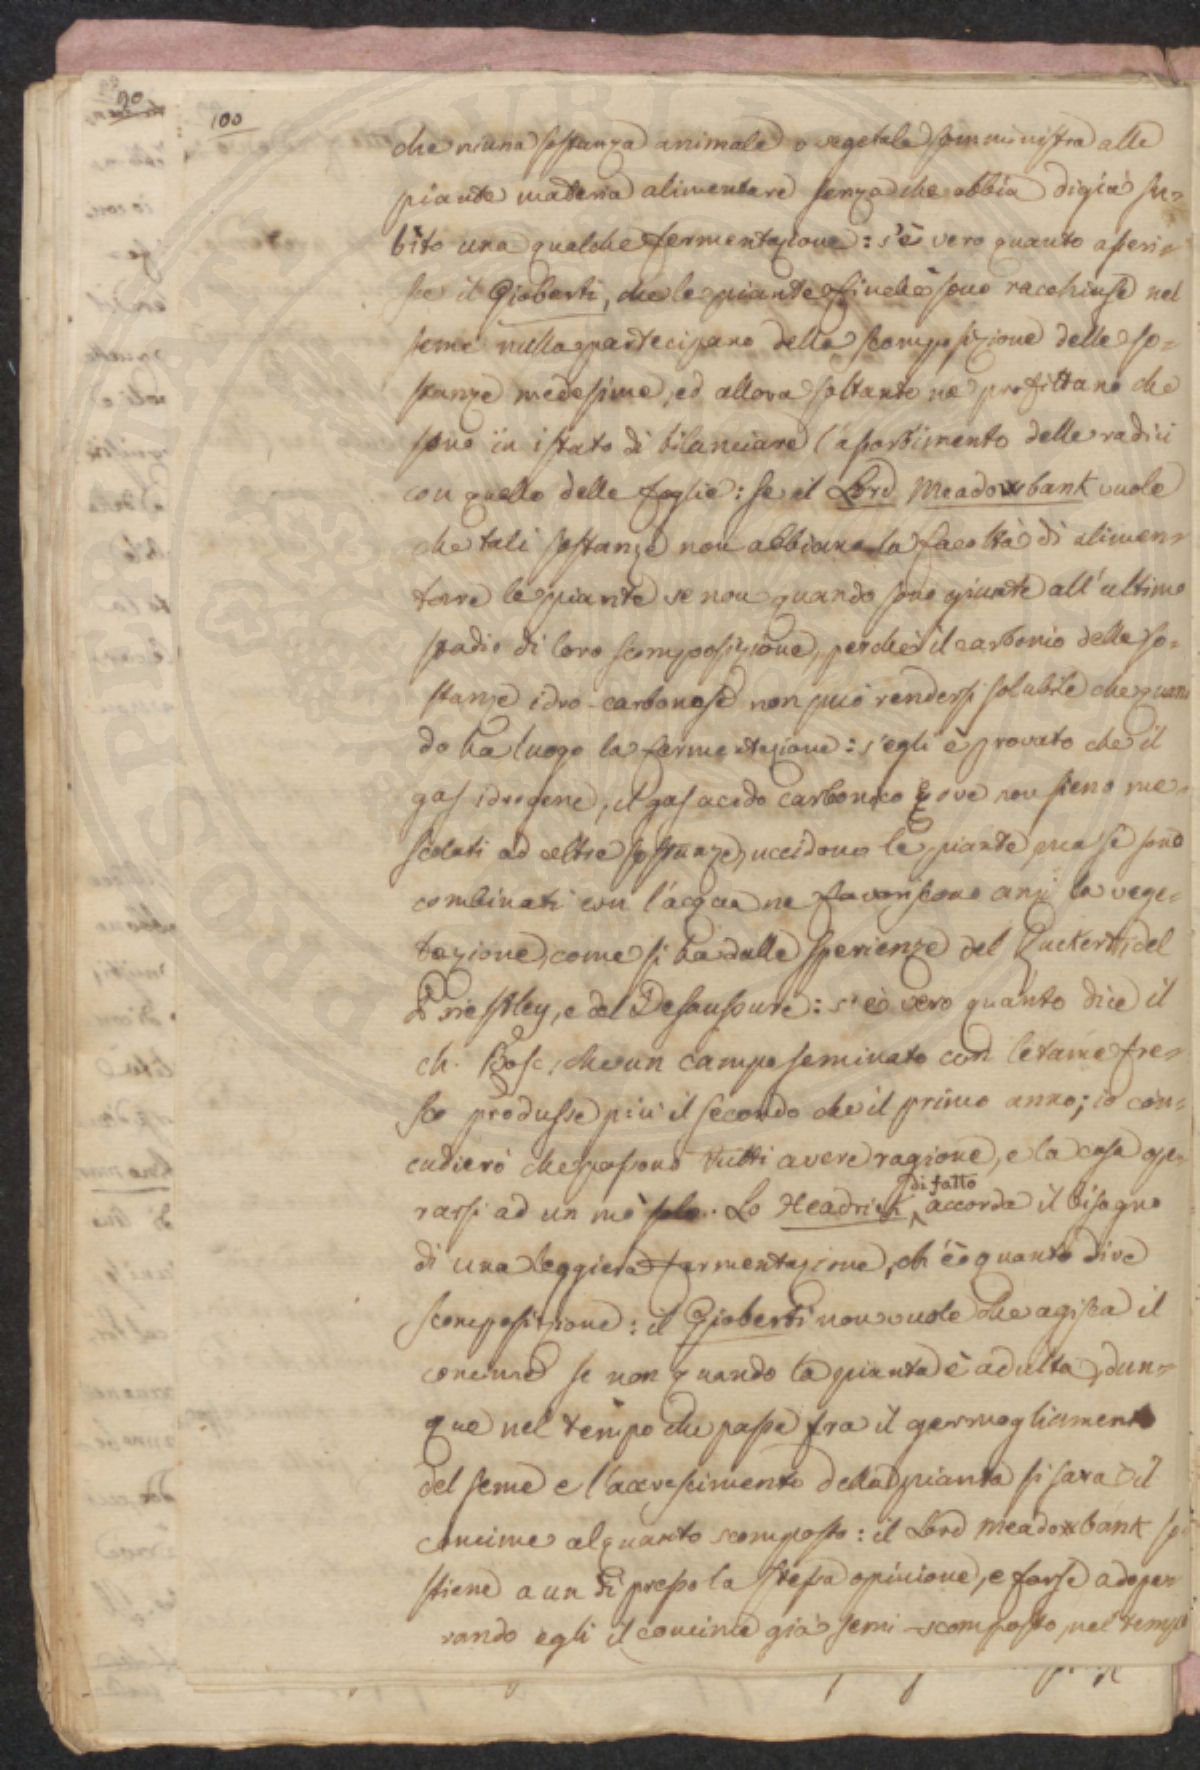 100
che niuna sostanza animale o vegetale somministra alle
piante materia alimentare senza che abbia digià su-
bito una qualche fermentazione: s'è vero quanto asseri-
sce il Gioberti, che le piante finchè sono racchiuse nel
seme nulla partecipano della scomposizione delle so-
stanze medesime, ed allora soltanto ne profittano che
sono in istato di bilanciare l'assorbimento delle radici
con quello delle foglie: se il Lord Meadowbank vuole
che tali sostanze non abbiano la facoltà di alimen-
tare le piante se non quando sono giunte all'ultimo
stadio di loro scomposizione, perchè il carbonio delle so-
stanze idro-carbonose non può rendersi solubile che quan
do ha luogo la fermentazione: s'egli è provato che il
gas idrogene, il gas acido carbonico ove non sieno me-
scolati ad altre sostanze, uccidono le piante ma se sono
combinati con l'acqua ne favoriscono anzi la vege-
tazione, come si ha dalle sperienze del Ruckert, del
Priestley, e del Desaussure: s'è vero quanto dice il
ch. Bosc, che un campo seminato con letame fre-
sco produsse più il secondo che il primo anno; io con-
cludierò che possono tutti avere ragione, e la cosa ope-
rarsi ad un mò solo. Lo Headrick di fatto accorda il bisogno
di una leggiera fermentazione, ch'è quanto dire
scomposizione: il Gioberti non vuole che agisca il
concime se non quando la pianta è adulta, dun-
que nel tempo che passa fra il germogliamento
del seme e l'accrescimento della pianta si sarà il
concime alquanto scomposto: il Lord Meadowbank so
stiene a un di presso la stessa opinione, e forse adope-
rando egli il concime già semi-scomposto, nel tempo